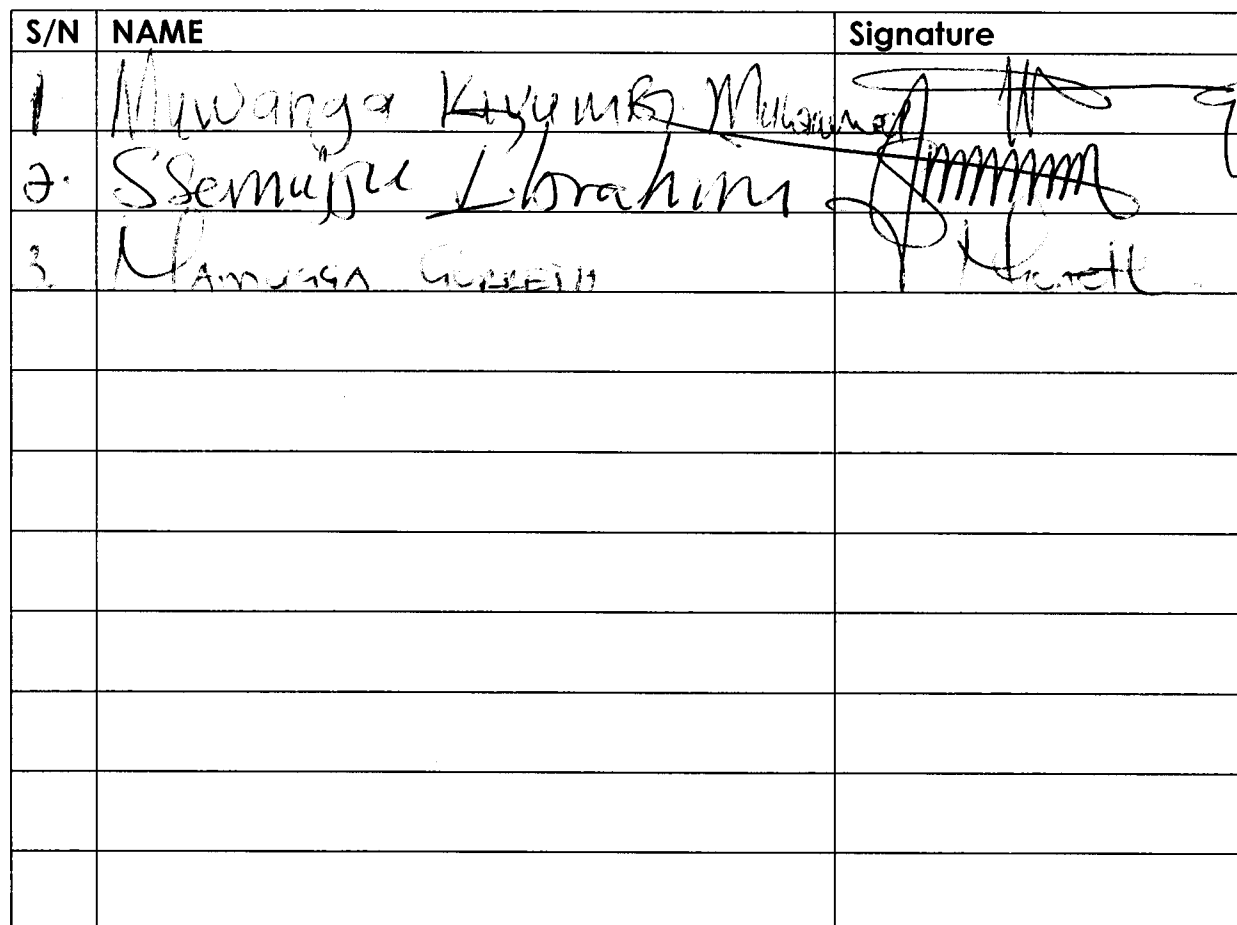 S/N NAME Signature
1 Muwanga Kivumbi Muhammad
2. Ssemujju Ibrahim
3 Namugga